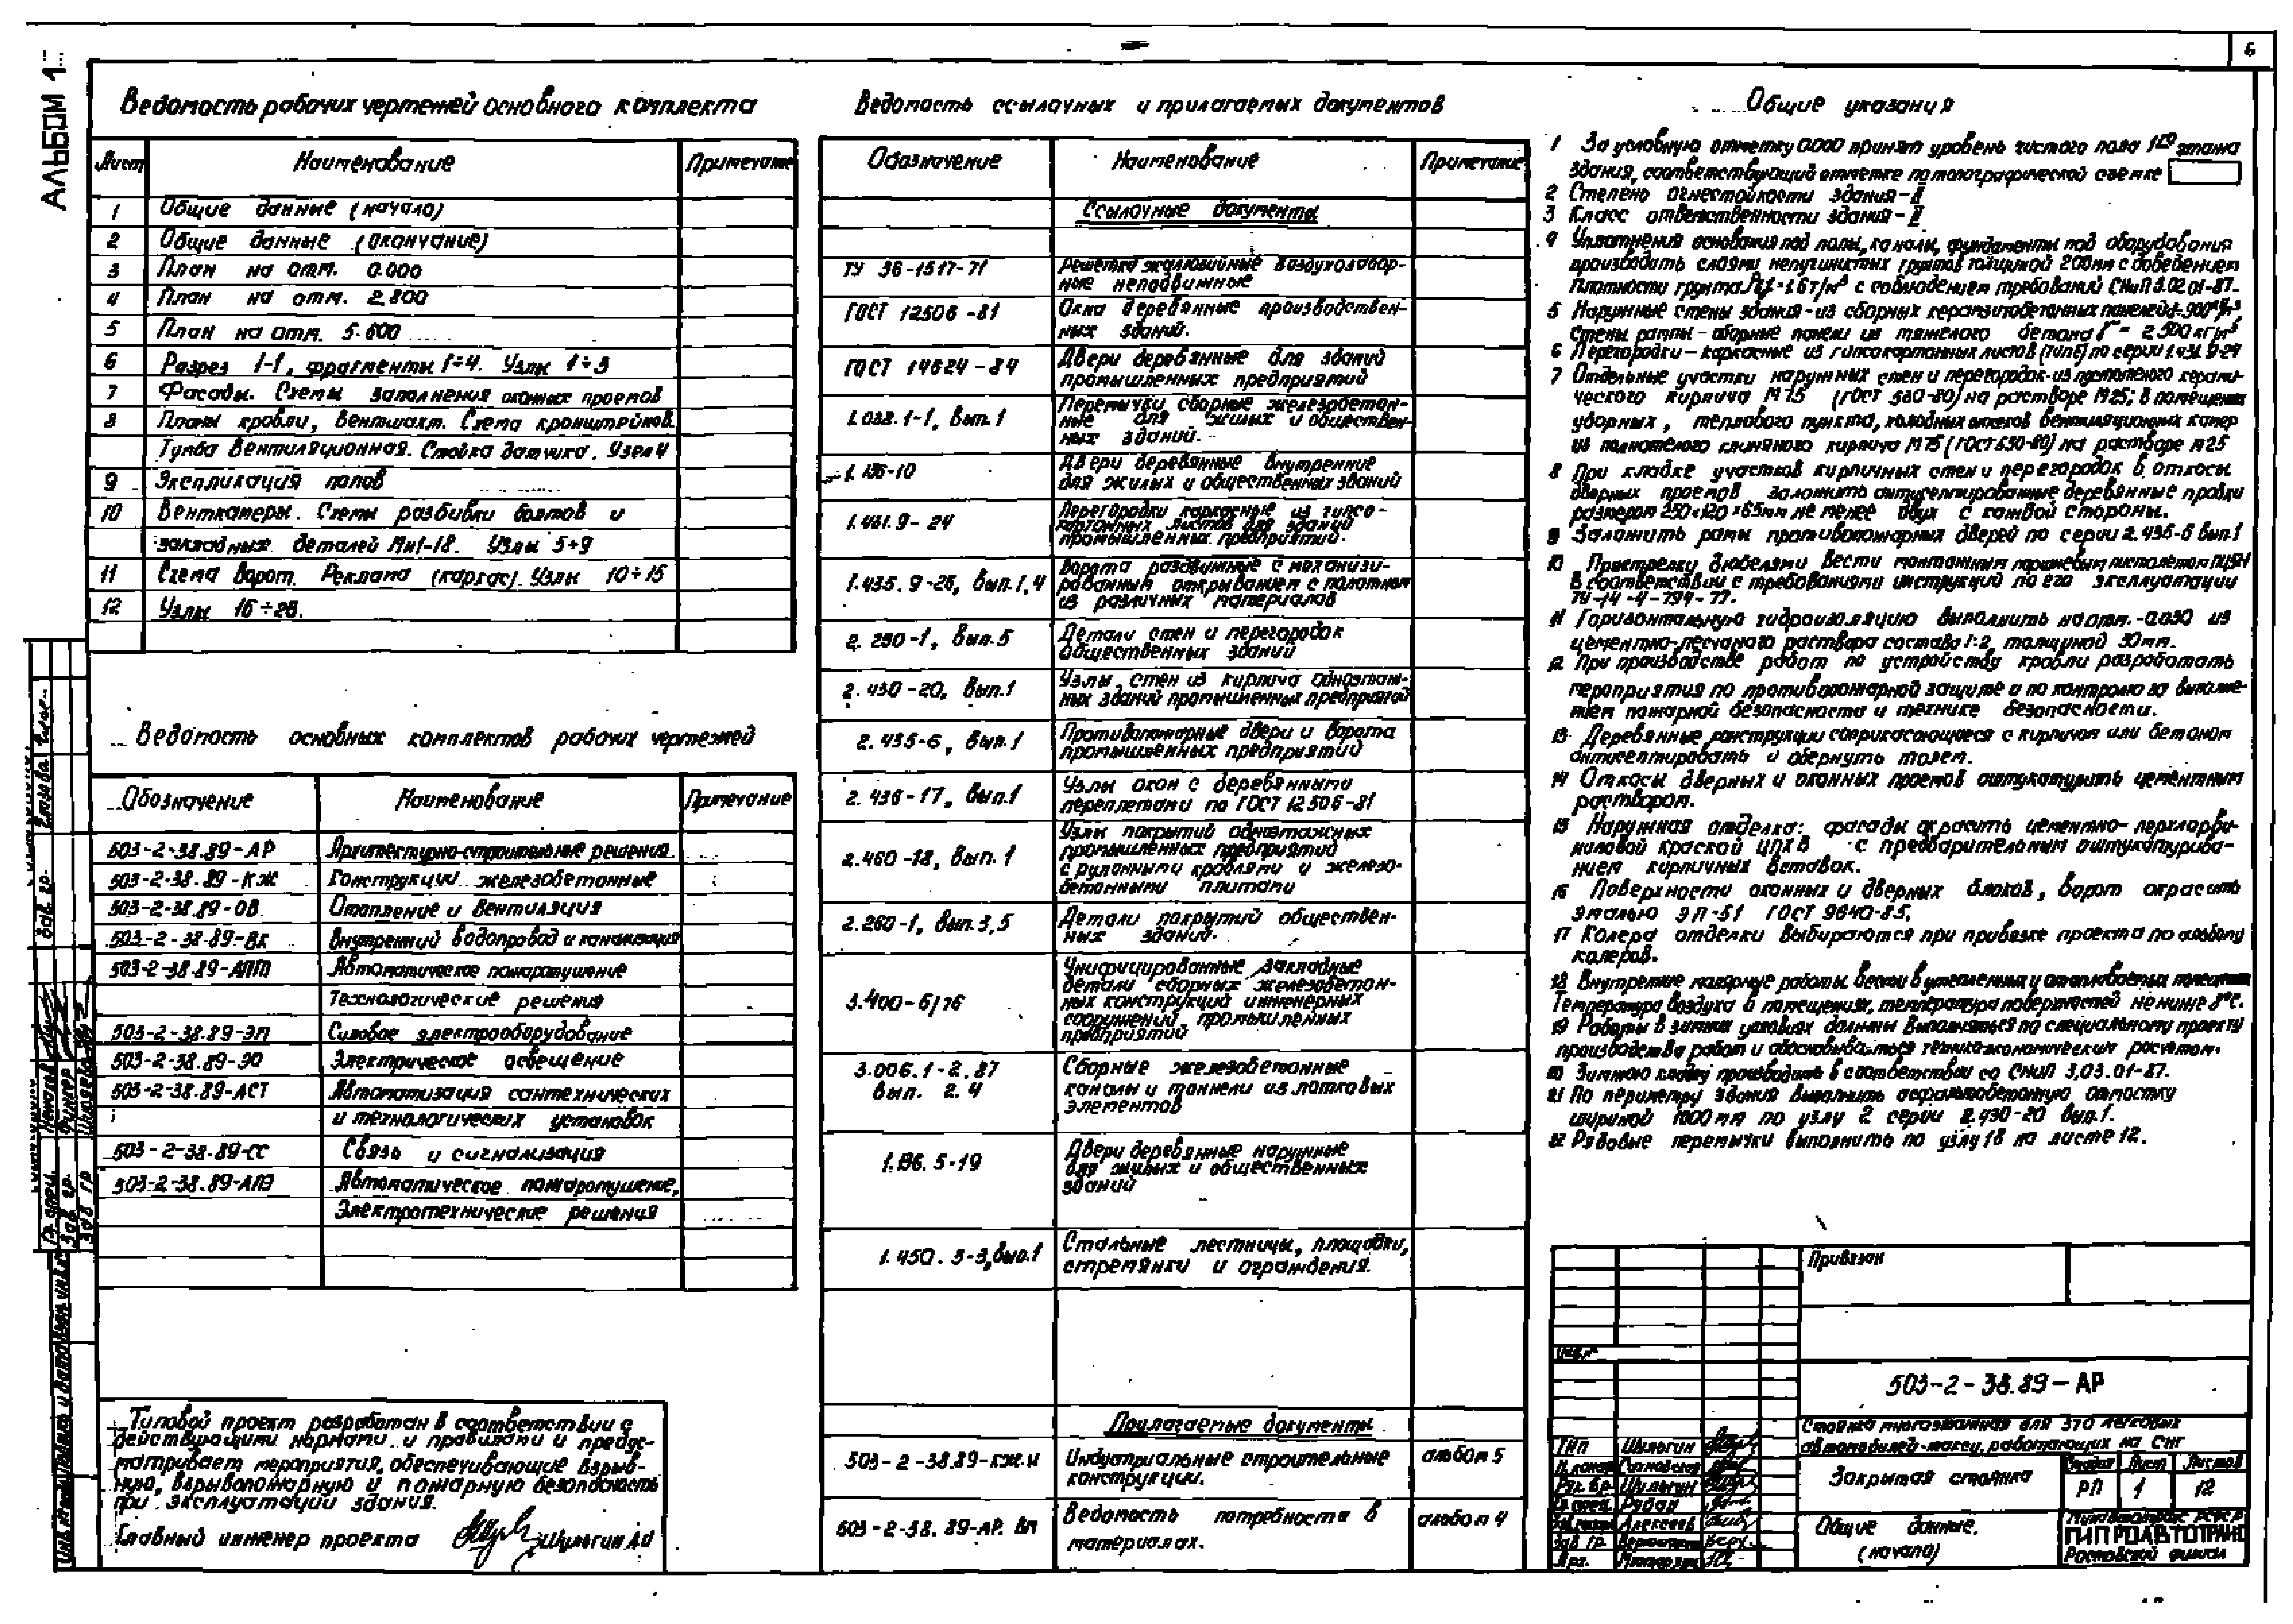 6
АЛЬБОМ 1
Ведомость рабочих чертежей основного комплекта
Лист Наименование Примечание
1 Общие данные (начало)
2 Общие данные (окончание)
3 План на отм. 0.000
4 План на отм. 2.800
5 План на отм. 5.600
6 Разрез 1-1, фрагменты 1÷4. Узлы 1÷3
7 Фасады. Схемы заполнения оконных проемов
8 Планы кровли, вентшахт. Схема кронштейнов.
Тумба вентиляционная. Стойка датчика. Узел 4
9 Экспликация полов
10 Венткамеры. Схемы разбивки болтов и
закладных деталей Мн1-18. Узлы 5÷9
11 Схема ворот. Реклама (каркас). Узлы 10÷15
12 Узлы 16÷28.
Ведомость основных комплектов рабочих чертежей
Обозначение Наименование Примечание
503-2-38.89-АР Архитектурно-строительные решения
503-2-38.89-КЖ Конструкции железобетонные
503-2-38.89-ОВ Отопление и вентиляция
503-2-38.89-ВК Внутренний водопровод и канализация
503-2-38.89-АПТ Автоматическое пожаротушение
Технологические решения
503-2-38.89-ЭМ Силовое электрооборудование
503-2-38.89-ЭО Электрическое освещение
503-2-38.89-АСТ Автоматизация сантехнических
и технологических установок
503-2-38.89-СС Связь и сигнализация
503-2-38.89-АПЭ Автоматическое пожаротушение,
Электротехнические решения
Типовой проект разработан в соответствии с
действующими нормами и правилами и преду-
сматривает мероприятия, обеспечивающие взрыв-
ную, взрывопожарную и пожарную безопасность
при эксплуатации здания.
Главный инженер проекта Шульгин
Ведомость ссылочных и прилагаемых документов
Обозначение Наименование Примечание
Ссылочные документы
ТУ 36-1517-71 Решетки жалюзийные воздухозабор-
ные неподвижные
ГОСТ 12506-81 Окна деревянные производствен-
ных зданий.
ГОСТ 14624-84 Двери деревянные для зданий
промышленных предприятий
1.038.1-1, вып.1 Перемычки сборные железобетон-
ные для жилых и обществен-
ных зданий.
1.136-10 Двери деревянные внутренние
для жилых и общественных зданий
1.431.9-24 Перегородки каркасные из гипсо-
картонных листов для зданий
промышленных предприятий.
1.435.9-28, вып.1,4 Ворота раздвижные с механизи-
рованным открыванием с полотном
из различных материалов
2.230-1, вып.5 Детали стен и перегородок
общественных зданий
2.430-20, вып.1 Узлы стен из кирпича одноэтаж-
ных зданий промышленных предприятий
2.435-6, вып.1 Противопожарные двери и ворота
промышленных предприятий
2.436-17, вып.1 Узлы окон с деревянными
переплетами по ГОСТ 12506-81
2.460-18, вып.1 Узлы покрытий одноэтажных
промышленных предприятий
с рулонными кровлями и железо-
бетонными плитами
2.260-1, вып.3,5 Детали покрытий обществен-
ных зданий.
3.400-6/76 Унифицированные закладные
детали сборных железобетон-
ных конструкций инженерных
сооружений промышленных
предприятий
3.006.1-2.87 Сборные железобетонные
вып. 2.4 каналы и тоннели из лотковых
элементов
1.136.5-19 Двери деревянные наружные
для жилых и общественных
зданий
1.450.3-3, вып.1 Стальные лестницы, площадки,
стремянки и ограждения.
Прилагаемые документы
503-2-38.89-КЖ.И Индустриальные строительные альбом 5
конструкции.
503-2-38.89-АР.ВМ Ведомость потребности в альбом 4
материалах.
Общие указания
1 За условную отметку 0.000 принят уровень чистого пола 1го этажа
здания, соответствующий отметке по топографической съемке
2 Степень огнестойкости здания-II
3 Класс ответственности здания-II
4 Уплотнения основания под полы, каналы, фундаменты под оборудования
производить слоями непучинистых грунтов толщиной 200мм с доведением
плотности грунта =1.6т/м³ с соблюдением требований СНиП 3.02.01-87.
5 Наружные стены здания-из сборных керамзитобетонных панелей
Стены рампы-сборные панели из тяжелого бетона = 2500 кг/м³
6 Перегородки-каркасные из гипсокартонных листов по серии 1.431.9-24
7 Отдельные участки наружных стен и перегородок-из пустотелого керами-
ческого кирпича М75 (ГОСТ 530-80) на растворе М25; в помещениях
уборных, теплового пункта, холодных отсеков вентиляционных камер
из полнотелого глиняного кирпича М75 (ГОСТ 530-80) на растворе М25
8 При кладке участков кирпичных стен и перегородок в откосы
дверных проемов заложить антисептированные деревянные пробки
размером 250×120×65мм не менее двух с каждой стороны.
9 Заложить рамы противопожарных дверей по серии 2.435-6 вып.1
10 Пристрелку дюбелями вести монтажным поршневым пистолетом
в соответствии с требованиями инструкций по его эксплуатации
ТУ-14-4-794-77.
11 Горизонтальную гидроизоляцию выполнить на отм.-0.030 из
цементно-песчаного раствора состава 1:2, толщиной 30мм.
12 При производстве работ по устройству кровли разработать
мероприятия по противопожарной защите и по контролю за выполне-
нием пожарной безопасности и технике безопасности.
13 Деревянные конструкции соприкасающиеся с кирпичом или бетоном
антисептировать и обернуть толем.
14 Откосы дверных и оконных проемов оштукатурить цементным
раствором.
15 Наружная отделка: фасады окрасить цементно-перхлорви-
ниловой краской ЦПХВ с предварительным оштукатурива-
нием кирпичных вставок.
16 Поверхности оконных и дверных блоков, ворот окрасить
эмалью ЭП-51 ГОСТ 9640-85.
17 Колера отделки выбираются при привязке проекта по альбому
колеров.
18 Внутренние малярные работы вести в утепленных и отапливаемых помещениях
Температура воздуха в помещениях, температура поверхностей не ниже 8°С.
19 Работы в зимних условиях должны выполняться по специальному проекту
производства работ и обосновываться технико-экономическим расчетом.
20 Зимнюю кладку производить в соответствии со СНиП 3.03.01-87.
21 По периметру здания выполнить асфальтобетонную отмостку
шириной 1000мм по узлу 2 серии 2.430-20 вып.1.
22 Рядовые перемычки выполнить по узлу 18 на листе 12.
Привязан
Инв.№
503-2-38.89-АР
Стоянка многоэтажная для 370 легковых
автомобилей-такси, работающих на СНГ
ГИП Шульгин
Рук. бр. Шульгин
Рябан
Алексеев
Зав. гр.
Закрытая стоянка
Стадия Лист Листов
РП 1 12
Общие данные.
(начало)
ГИПРОАВТОТРАНС
Ростовский филиал